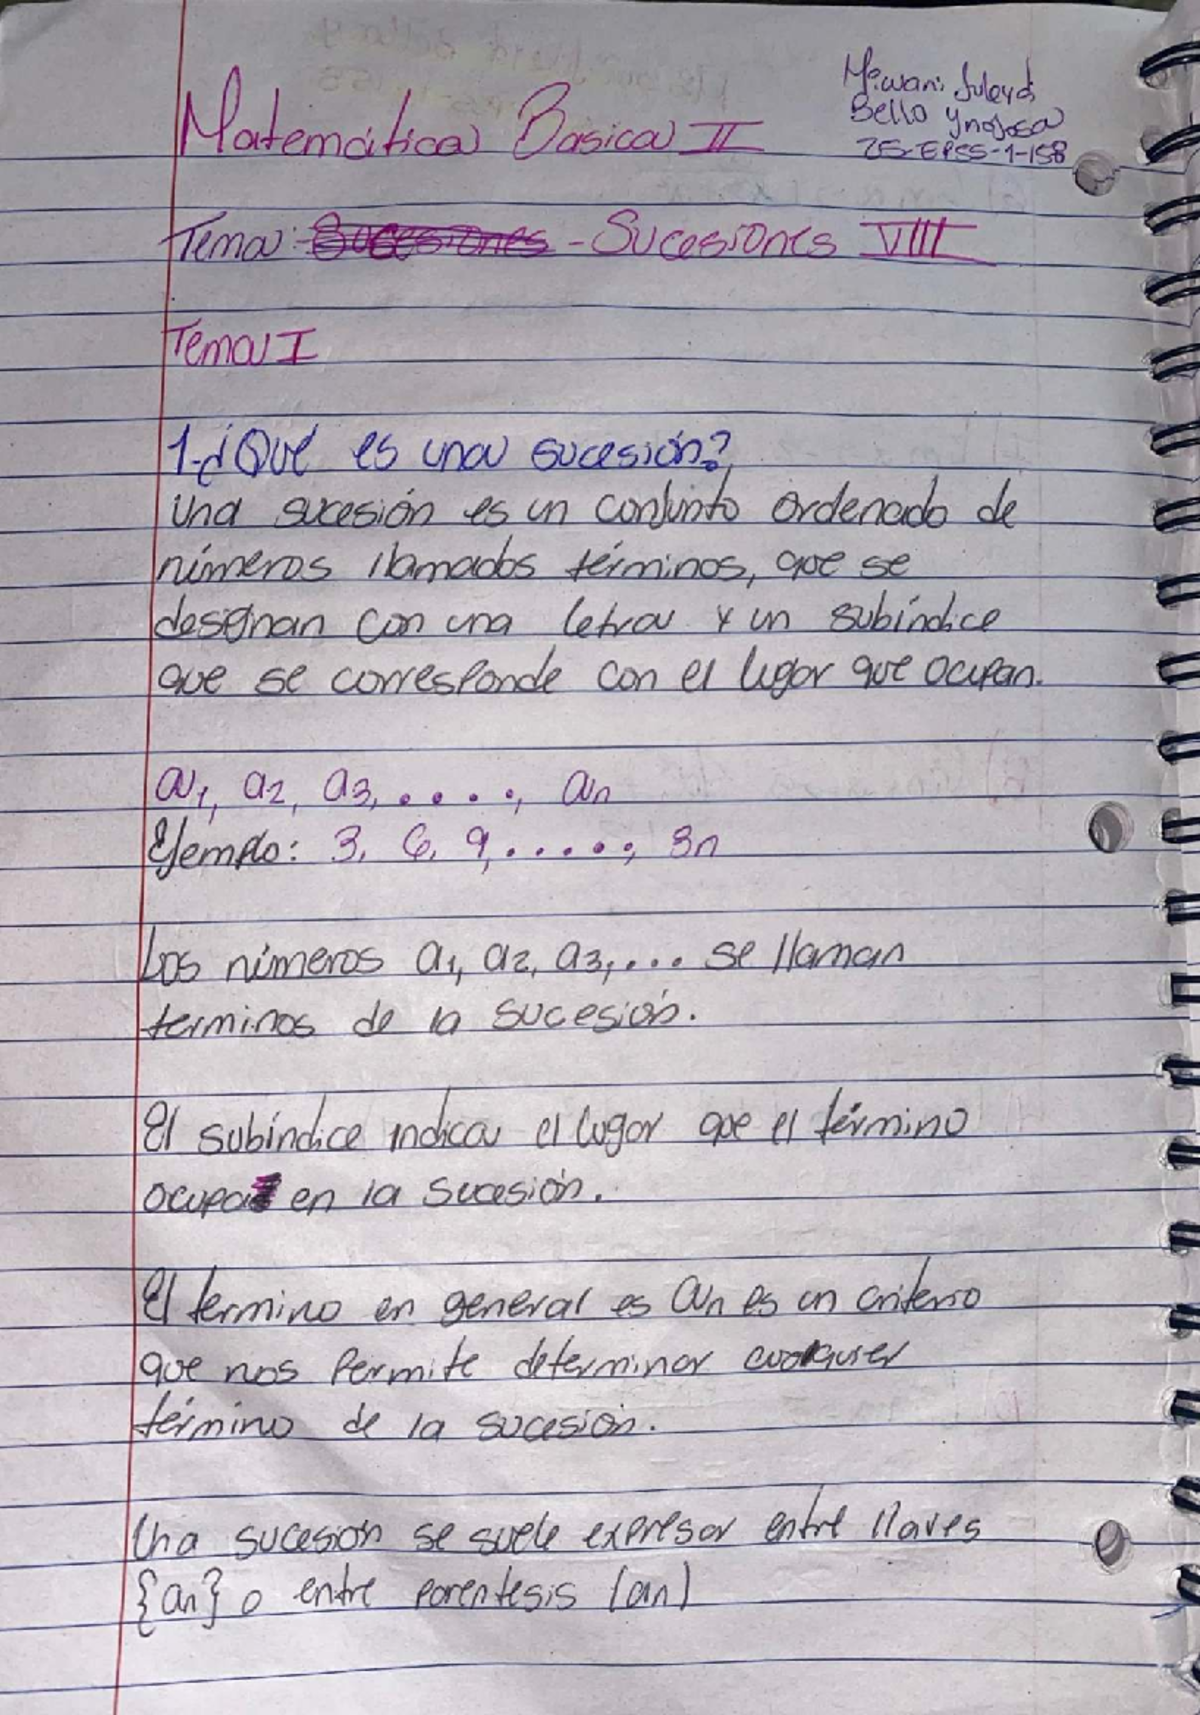 Matemática Basica II
Suleyd
Bello ynojosa
25-EPSS-1-158
Tema: Sucesiones - Sucesiones VIII
Tema I
1-¿Qué es una sucesión?
Una sucesión es un conjunto ordenado de
números llamados términos, que se
designan con una letra y un subíndice
que se corresponde con el lugar que ocupan.
a1, a2, a3, . . . . , an
Ejemplo: 3, 6, 9, . . . . . , 3n
Los números a1, a2, a3, ... se llaman
terminos de la sucesión.
El subíndice indica el lugar que el término
ocupa en la sucesión.
El termino en general es an es un criterio
que nos permite determinar cualquier
término de la sucesión.
Una sucesión se suele expresar entre llaves
{an} o entre parentesis (an)